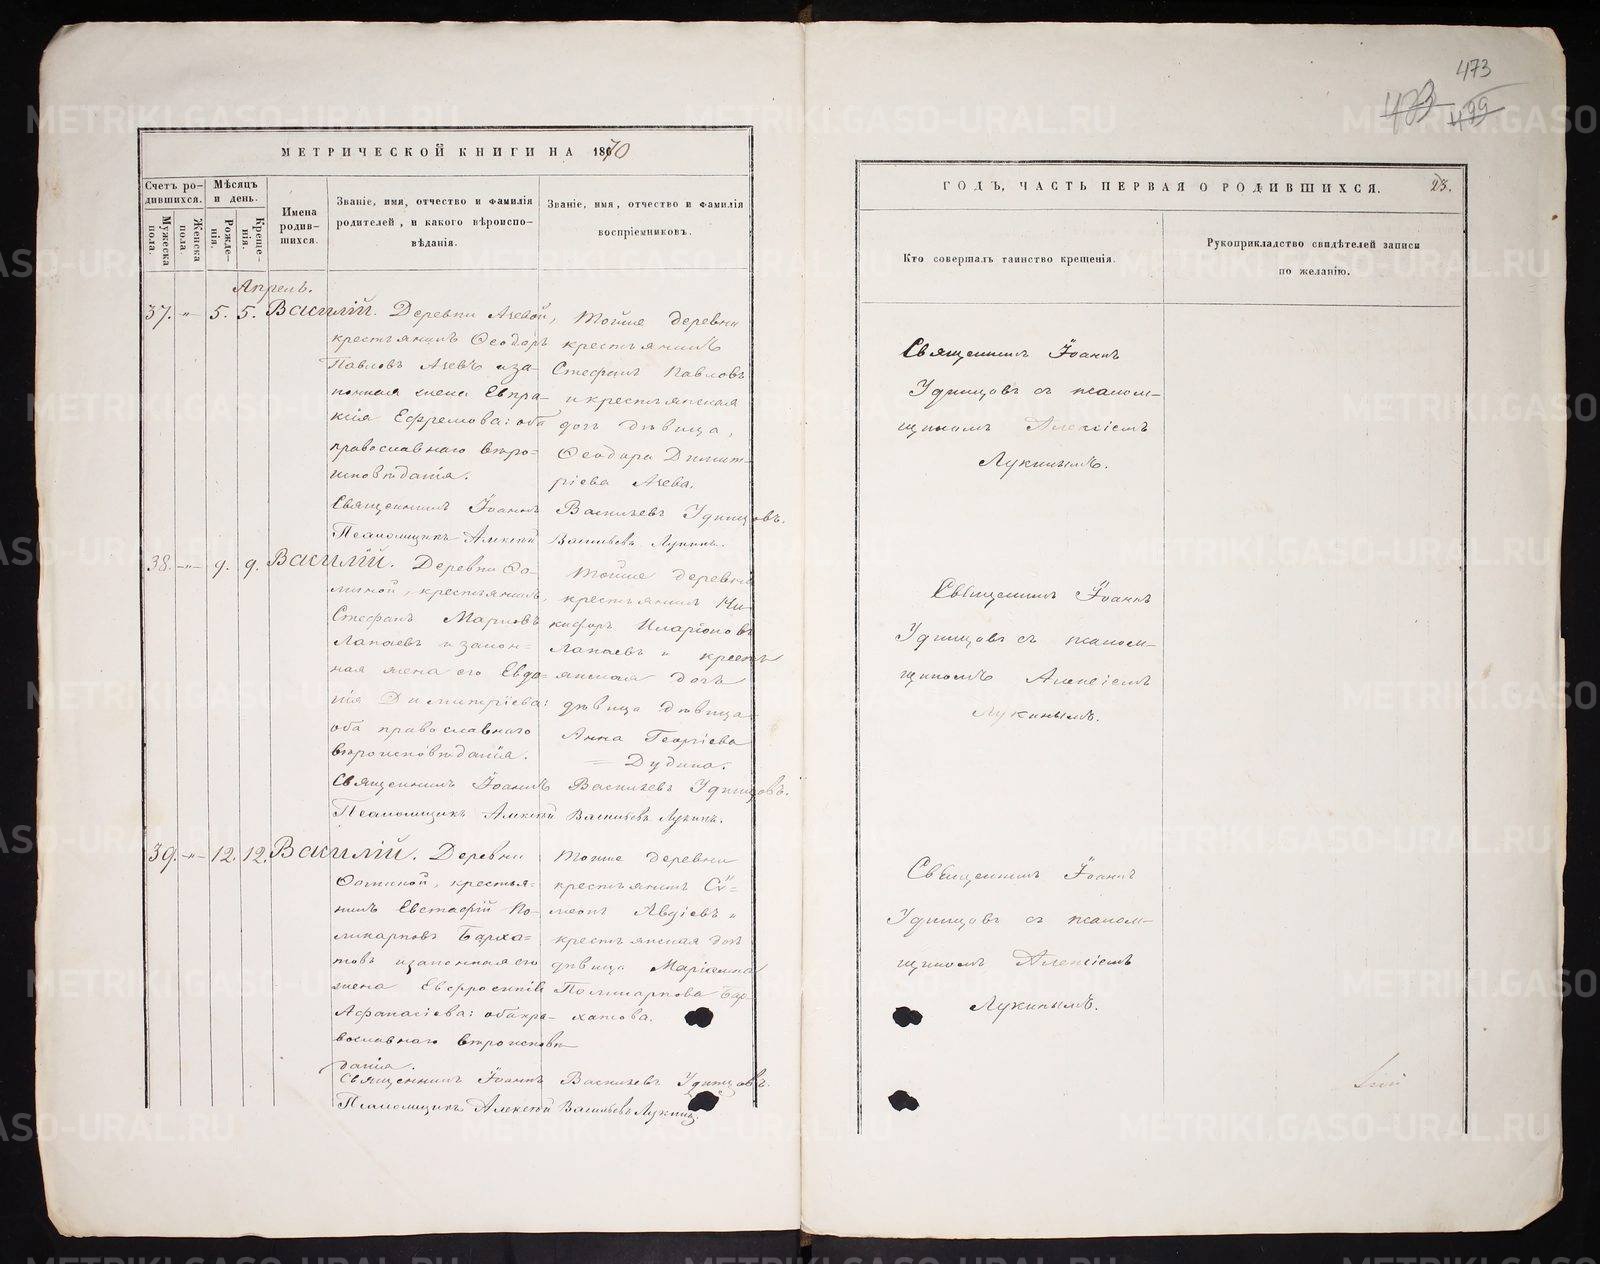 473
473 499
МЕТРИЧЕСКОЙ КНИГИ НА 1870
Счетъ ро-
дившихся.
Мужеска пола.
Женска пола.
Мѣсяцъ
и день.
Рожде-
нія.
Креще-
нія.
Имена
родив-
шихся.
Званіе, имя, отчество и фамилія
родителей, и какого вѣроиспо-
вѣданія.
Званіе, имя, отчество и фамилія
воспріемниковъ.
Апрель.
37. -"- 5. 5. Василій.
Деревни Ячевой,
крестьянинъ Ѳеодоръ
Павловъ Ячевъ и за-
конная жена Евпра-
ксія Ефремова: оба
православнаго вѣро-
исповѣданія.
Тойже деревни
крестьянинъ
Стефанъ Павловъ
и крестьянская
дочь дѣвица,
Ѳеодора Димит-
ріева Ячева.
Священникъ Іоаннъ Васильевъ Удинцовъ.
Псаломщикъ Алексій Васильевъ Лукинъ.
38. -"- 9. 9. Василій.
Деревни
крестьянинъ,
Стефанъ Марковъ
Лапаевъ и закон-
ная жена его Евдо-
кія Димитріева:
оба православнаго
вѣроисповѣданія.
Тойже деревни
крестьянинъ Ни-
кифоръ Иларіоновъ
Лапаевъ и кресть
янская дочь
дѣвица дѣвица
Анна Георгіева
Дудина.
Священникъ Іоаннъ Васильевъ Удинцовъ.
Псаломщикъ Алексій Васильевъ Лукинъ.
39. -"- 12. 12. Василій.
Деревни
крестья-
нинъ Евстафій По-
ликарповъ Барха-
товъ и законная его
жена Евфросинія
Афанасіева: оба пра-
вославнаго вѣроисповѣ
данія.
Тойже деревни
крестьянинъ Сѵ-
меонъ Авдіевъ и
крестьянская дочь
дѣвица Маріамна
Поликарпова Бар-
хатова.
Священникъ Іоаннъ Васильевъ Удинцовъ.
Псаломщикъ Алексій Васильевъ Лукинъ.
ГОДЪ, ЧАСТЬ ПЕРВАЯ О РОДИВШИХСЯ. 23.
Кто совершалъ таинство крещенія.
Рукоприкладство свидѣтелей записи
по желанію.
Священникъ Іоаннъ
Удинцовъ съ псалом-
щикомъ Алексіемъ
Лукинымъ.
Священникъ Іоаннъ
Удинцовъ съ псалом-
щикомъ Алексіемъ
Лукинымъ.
Священникъ Іоаннъ
Удинцовъ съ псалом-
щикомъ Алексіемъ
Лукинымъ.
METRIKI.GASO-URAL.RU